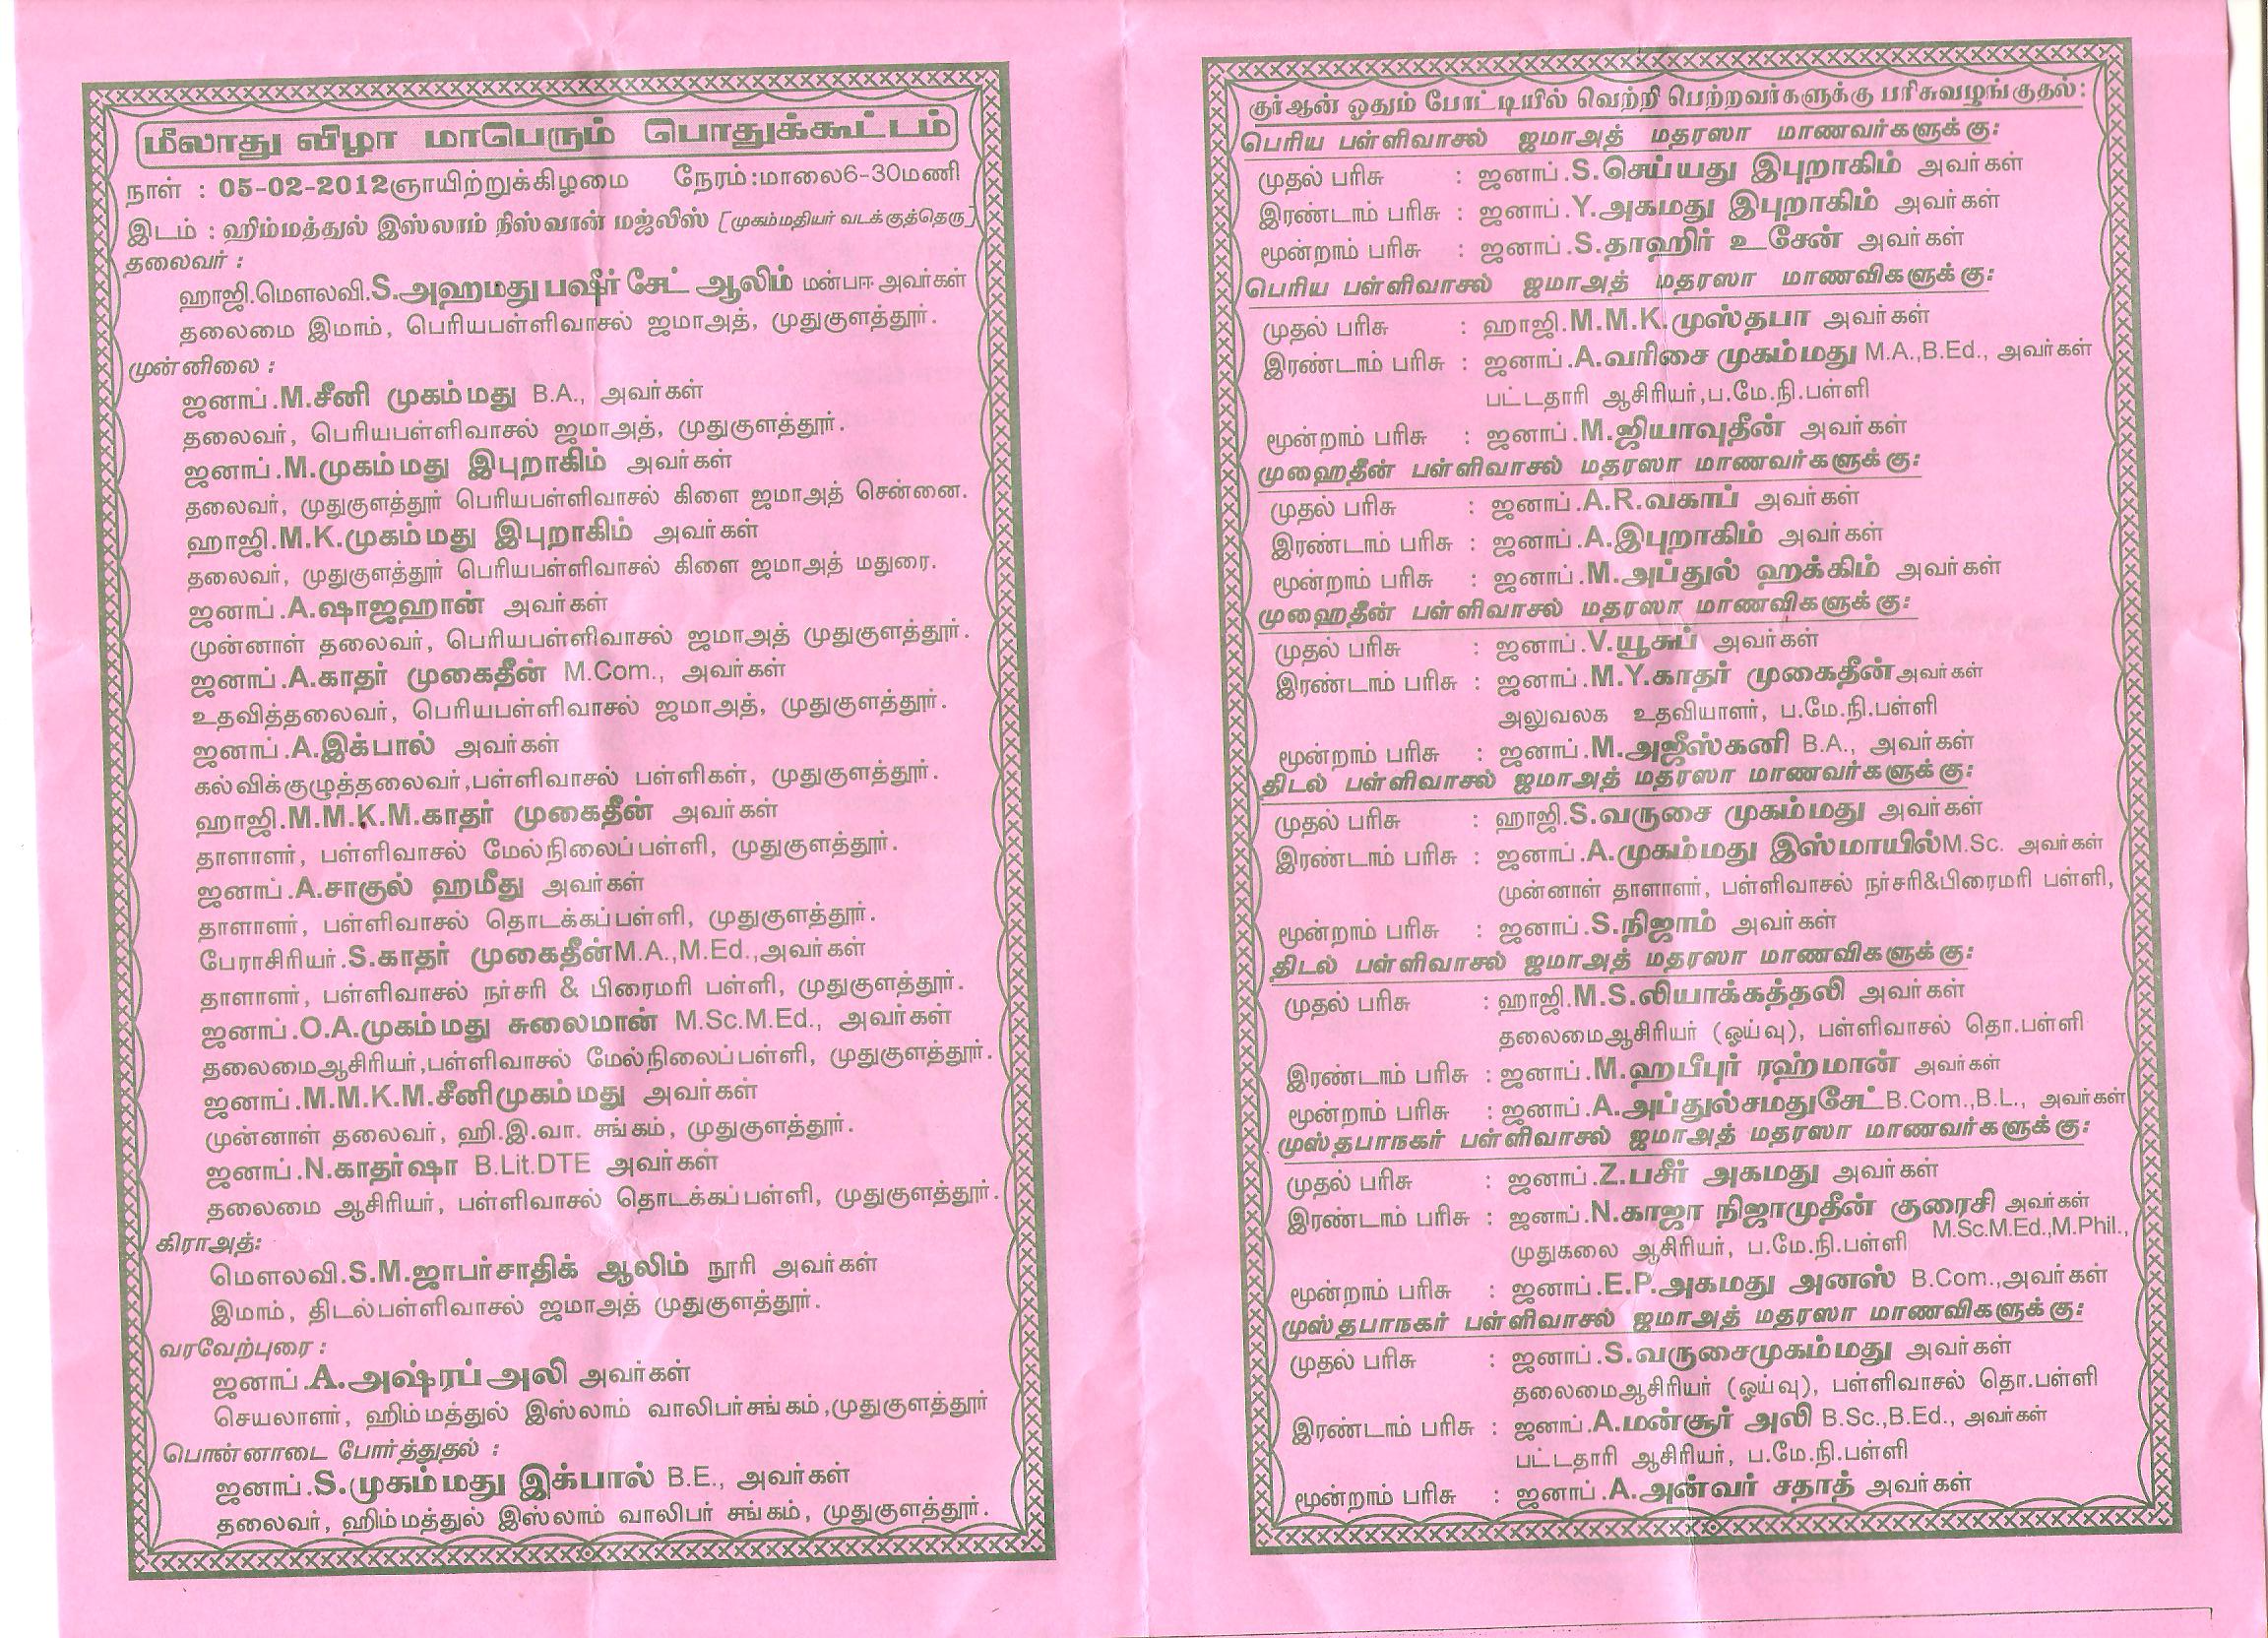 மீலாது விழா மாபெரும் பொதுக்கூட்டம்
நாள் : 05-02-2012ஞாயிற்றுக்கிழமை நேரம்:மாலை6-30மணி
இடம் : ஹிம்மத்துல் இஸ்லாம் நிஸ்வான் மஜ்லிஸ் [முகம்மதியர் வடக்குத்தெரு]
தலைவர் :
ஹாஜி.மௌலவி.S.அஹமது பஷீர் சேட் ஆலிம் மன்பஈ அவர்கள்
தலைமை இமாம், பெரியபள்ளிவாசல் ஜமாஅத், முதுகுளத்தூர்.
முன்னிலை :
ஜனாப்.M.சீனி முகம்மது B.A., அவர்கள்
தலைவர், பெரியபள்ளிவாசல் ஜமாஅத், முதுகுளத்தூர்.
ஜனாப்.M.முகம்மது இபுறாகிம் அவர்கள்
தலைவர், முதுகுளத்தூர் பெரியபள்ளிவாசல் கிளை ஜமாஅத் சென்னை.
ஹாஜி.M.K.முகம்மது இபுறாகிம் அவர்கள்
தலைவர், முதுகுளத்தூர் பெரியபள்ளிவாசல் கிளை ஜமாஅத் மதுரை.
ஜனாப்.A.ஷாஜஹான் அவர்கள்
முன்னாள் தலைவர், பெரியபள்ளிவாசல் ஜமாஅத் முதுகுளத்தூர்.
ஜனாப்.A.காதர் முகைதீன் M.Com., அவர்கள்
உதவித்தலைவர், பெரியபள்ளிவாசல் ஜமாஅத், முதுகுளத்தூர்.
ஜனாப்.A.இக்பால் அவர்கள்
கல்விக்குழுத்தலைவர்,பள்ளிவாசல் பள்ளிகள், முதுகுளத்தூர்.
ஹாஜி.M.M.K.M.காதர் முகைதீன் அவர்கள்
தாளாளர், பள்ளிவாசல் மேல்நிலைப்பள்ளி, முதுகுளத்தூர்.
ஜனாப்.A.சாகுல் ஹமீது அவர்கள்
தாளாளர், பள்ளிவாசல் தொடக்கப்பள்ளி, முதுகுளத்தூர்.
பேராசிரியர்.S.காதர் முகைதீன்M.A.,M.Ed.,அவர்கள்
தாளாளர், பள்ளிவாசல் நர்சரி & பிரைமரி பள்ளி, முதுகுளத்தூர்.
ஜனாப்.O.A.முகம்மது சுலைமான் M.Sc.M.Ed., அவர்கள்
தலைமைஆசிரியர்,பள்ளிவாசல் மேல்நிலைப்பள்ளி, முதுகுளத்தூர்.
ஜனாப்.M.M.K.M.சீனிமுகம்மது அவர்கள்
முன்னாள் தலைவர், ஹி.இ.வா. சங்கம், முதுகுளத்தூர்.
ஜனாப்.N.காதர்ஷா B.Lit.DTE அவர்கள்
தலைமை ஆசிரியர், பள்ளிவாசல் தொடக்கப்பள்ளி, முதுகுளத்தூர்.
கிராஅத்:
மௌலவி.S.M.ஜாபர்சாதிக் ஆலிம் நூரி அவர்கள்
இமாம், திடல்பள்ளிவாசல் ஜமாஅத் முதுகுளத்தூர்.
வரவேற்புரை :
ஜனாப்.A.அஷ்ரப் அலி அவர்கள்
செயலாளர், ஹிம்மத்துல் இஸ்லாம் வாலிபர்சங்கம்,முதுகுளத்தூர்
பொன்னாடை போர்த்துதல் :
ஜனாப்.S.முகம்மது இக்பால் B.E., அவர்கள்
தலைவர், ஹிம்மத்துல் இஸ்லாம் வாலிபர் சங்கம், முதுகுளத்தூர்.
குர்ஆன் ஓதும் போட்டியில் வெற்றி பெற்றவர்களுக்கு பரிசுவழங்குதல்:
பெரிய பள்ளிவாசல் ஜமாஅத் மதரஸா மாணவர்களுக்கு:
முதல் பரிசு : ஜனாப்.S.செய்யது இபுறாகிம் அவர்கள்
இரண்டாம் பரிசு : ஜனாப்.Y.அகமது இபுறாகிம் அவர்கள்
மூன்றாம் பரிசு : ஜனாப்.S.தாஹிர் உசேன் அவர்கள்
பெரிய பள்ளிவாசல் ஜமாஅத் மதரஸா மாணவிகளுக்கு:
முதல் பரிசு : ஹாஜி.M.M.K.முஸ்தபா அவர்கள்
இரண்டாம் பரிசு : ஜனாப்.A.வரிசை முகம்மது M.A.,B.Ed., அவர்கள்
பட்டதாரி ஆசிரியர்,ப.மே.நி.பள்ளி
மூன்றாம் பரிசு : ஜனாப்.M.ஜியாவுதீன் அவர்கள்
முஹைதீன் பள்ளிவாசல் மதரஸா மாணவர்களுக்கு:
முதல் பரிசு : ஜனாப்.A.R.வகாப் அவர்கள்
இரண்டாம் பரிசு : ஜனாப்.A.இபுறாகிம் அவர்கள்
மூன்றாம் பரிசு : ஜனாப்.M.அப்துல் ஹக்கிம் அவர்கள்
முஹைதீன் பள்ளிவாசல் மதரஸா மாணவிகளுக்கு:
முதல் பரிசு : ஜனாப்.V.யூசுப் அவர்கள்
இரண்டாம் பரிசு : ஜனாப்.M.Y.காதர் முகைதீன்அவர்கள்
அலுவலக உதவியாளர், ப.மே.நி.பள்ளி
மூன்றாம் பரிசு : ஜனாப்.M.அஜீஸ்கனி B.A., அவர்கள்
திடல் பள்ளிவாசல் ஜமாஅத் மதரஸா மாணவர்களுக்கு:
முதல் பரிசு : ஹாஜி.S.வருசை முகம்மது அவர்கள்
இரண்டாம் பரிசு : ஜனாப்.A.முகம்மது இஸ்மாயில்M.Sc. அவர்கள்
முன்னாள் தாளாளர், பள்ளிவாசல் நர்சரி&பிரைமரி பள்ளி,
மூன்றாம் பரிசு : ஜனாப்.S.நிஜாம் அவர்கள்
திடல் பள்ளிவாசல் ஜமாஅத் மதரஸா மாணவிகளுக்கு:
முதல் பரிசு : ஹாஜி.M.S.லியாக்கத்தலி அவர்கள்
தலைமைஆசிரியர் (ஓய்வு), பள்ளிவாசல் தொ.பள்ளி
இரண்டாம் பரிசு : ஜனாப்.M.ஹபீபுர் ரஹ்மான் அவர்கள்
மூன்றாம் பரிசு : ஜனாப்.A.அப்துல்சமதுசேட்B.Com.,B.L., அவர்கள்
முஸ்தபாநகர் பள்ளிவாசல் ஜமாஅத் மதரஸா மாணவர்களுக்கு:
முதல் பரிசு : ஜனாப்.Z.பசீர் அகமது அவர்கள்
இரண்டாம் பரிசு : ஜனாப்.N.காஜா நிஜாமுதீன் குரைசி அவர்கள்
முதுகலை ஆசிரியர், ப.மே.நி.பள்ளி M.Sc.M.Ed.,M.Phil.,
மூன்றாம் பரிசு : ஜனாப்.E.P.அகமது அனஸ் B.Com.,அவர்கள்
முஸ்தபாநகர் பள்ளிவாசல் ஜமாஅத் மதரஸா மாணவிகளுக்கு:
முதல் பரிசு : ஜனாப்.S.வருசைமுகம்மது அவர்கள்
தலைமைஆசிரியர் (ஓய்வு), பள்ளிவாசல் தொ.பள்ளி
இரண்டாம் பரிசு : ஜனாப்.A.மன்சூர் அலி B.Sc.,B.Ed., அவர்கள்
பட்டதாரி ஆசிரியர், ப.மே.நி.பள்ளி
மூன்றாம் பரிசு : ஜனாப்.A.அன்வர் சதாத் அவர்கள்